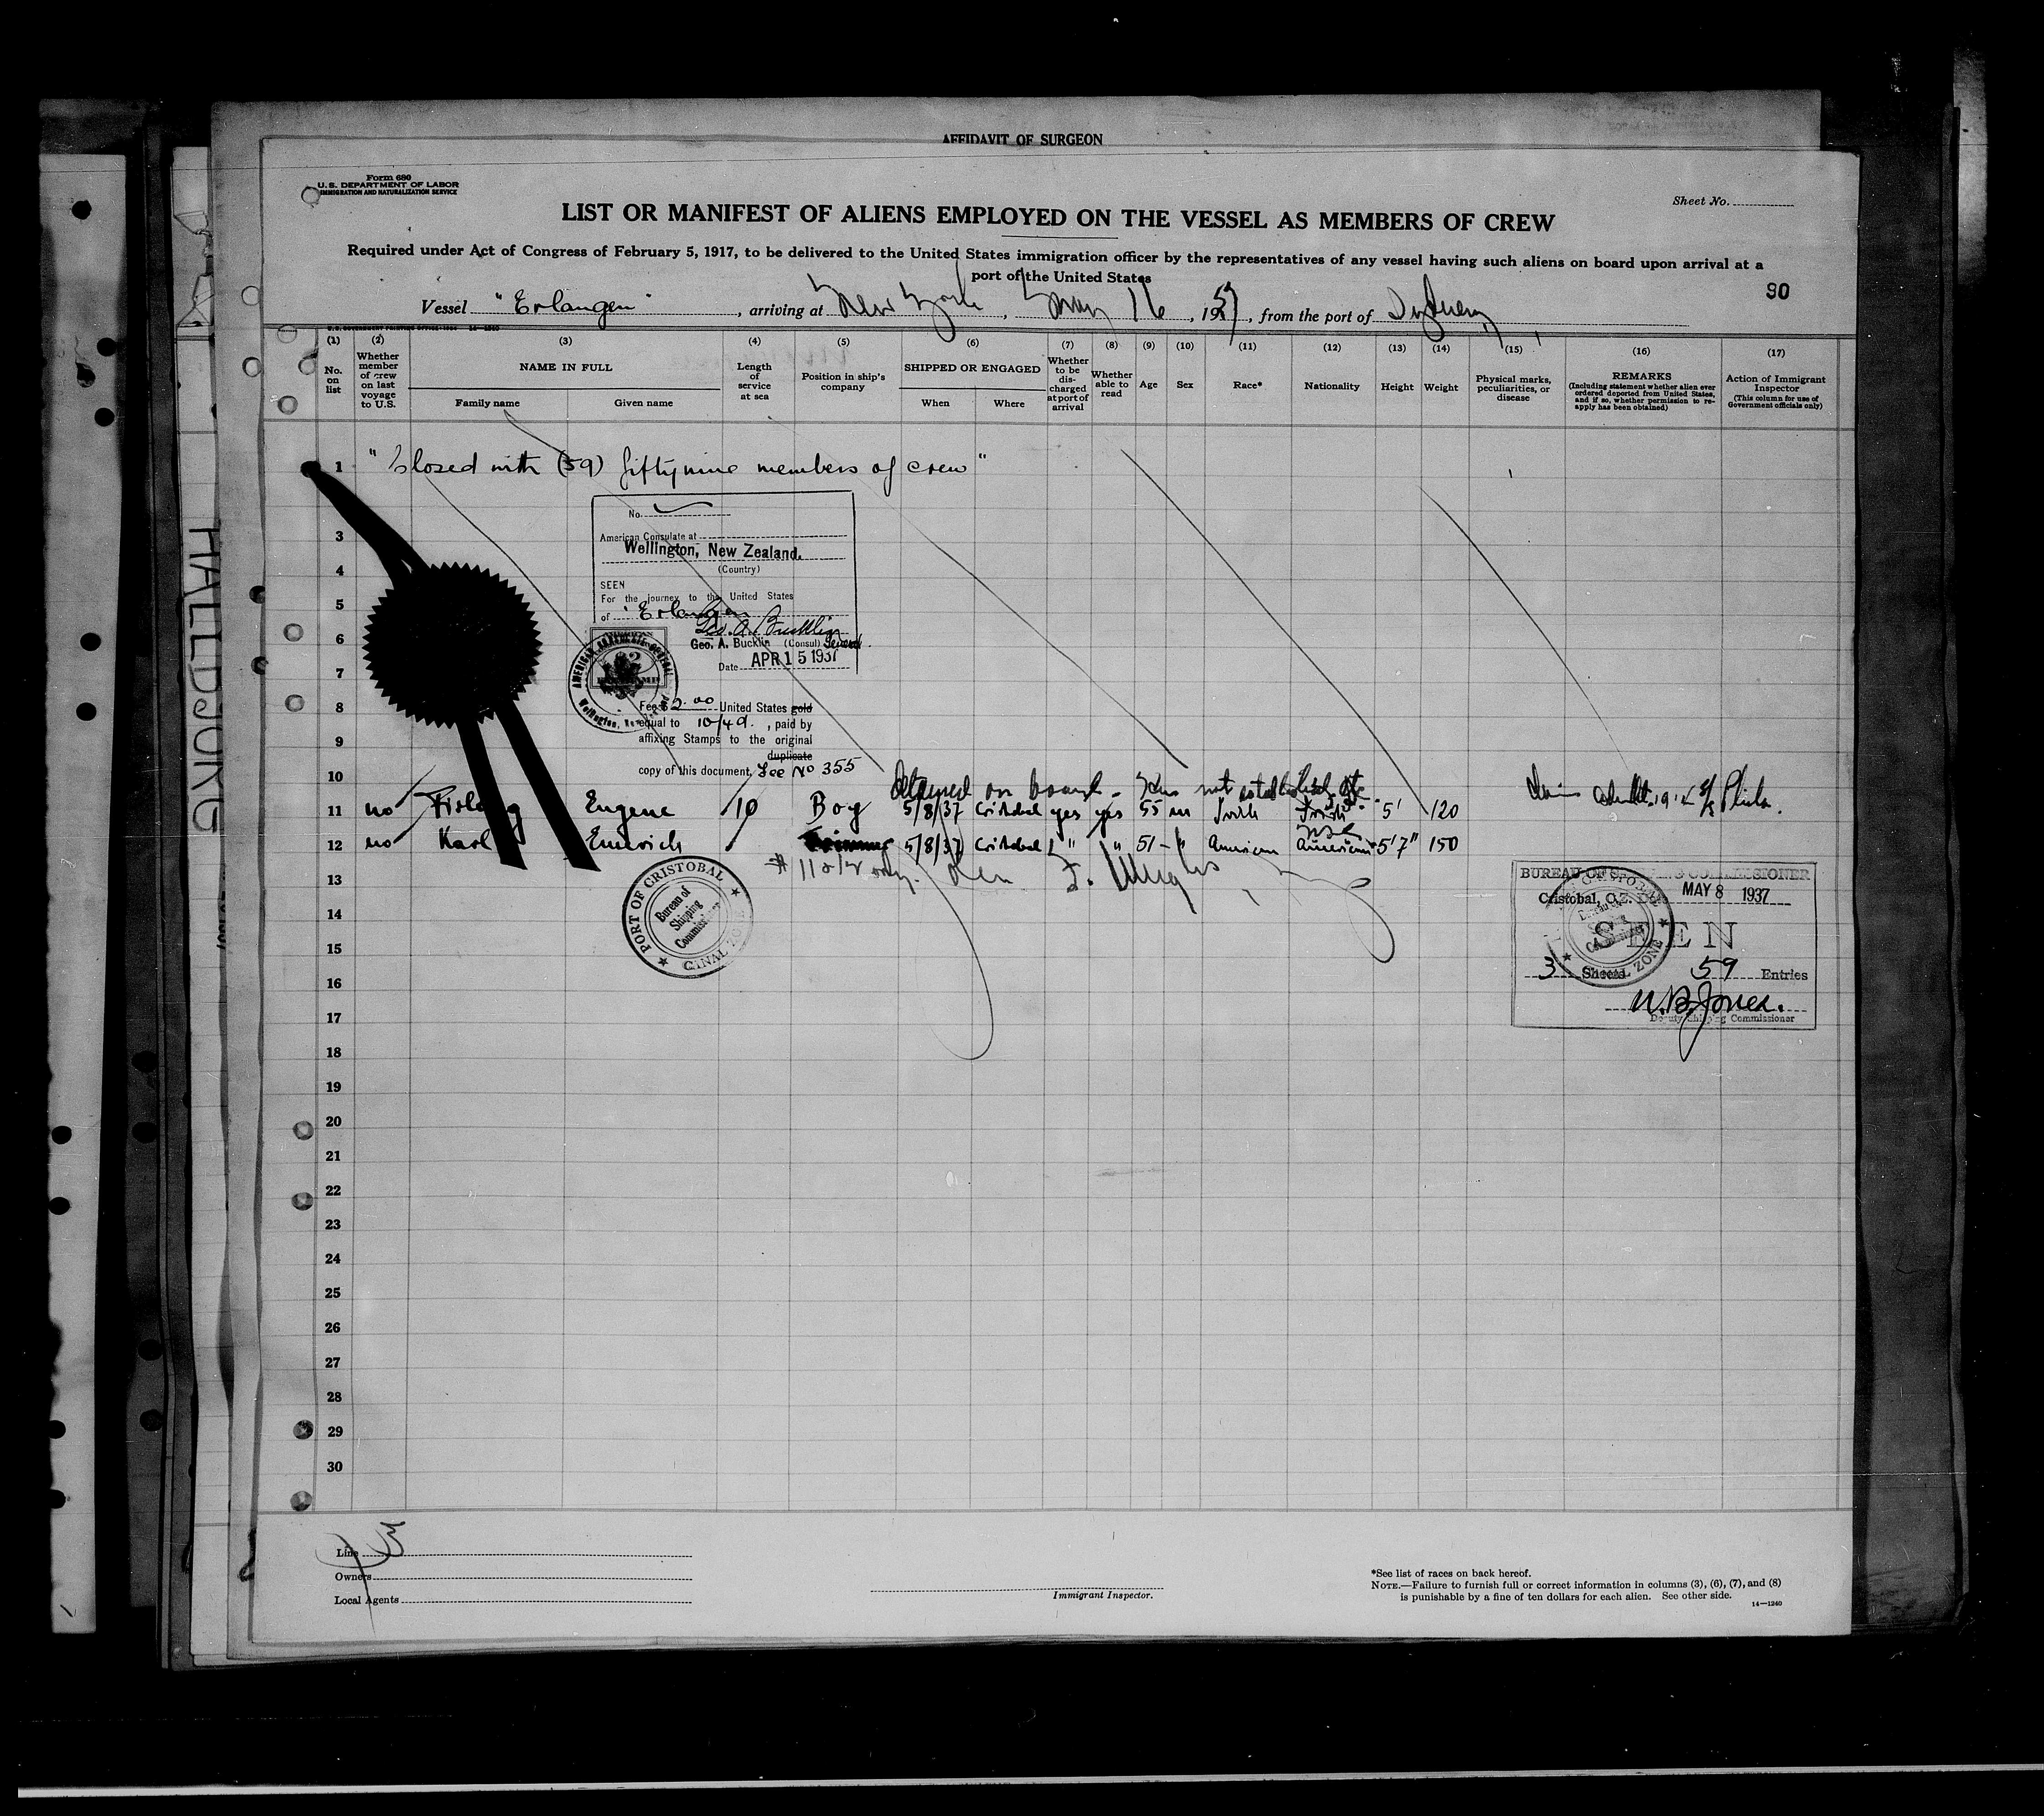 AFFIDAVIT OF SURGEON
Form 680
U. S. DEPARTMENT OF LABOR
IMMIGRATION AND NATURALIZATION SERVICE
Sheet No.
LIST OR MANIFEST OF ALIENS EMPLOYED ON THE VESSEL AS MEMBERS OF CREW
Required under Act of Congress of February 5, 1917, to be delivered to the United States immigration officer by the representatives of any vessel having such aliens on board upon arrival at a
port of the United States
90
Vessel "Erlangen", arriving at New York, May 16, 1937, from the port of Sydney
(1) (2) (3) (4) (5) (6) (7) (8) (9) (10) (11) (12) (13) (14) (15) (16) (17)
No. on list
Whether member of crew on last voyage to U.S.
NAME IN FULL
Family name
Given name
Length of service at sea
Position in ship's company
SHIPPED OR ENGAGED
When
Where
Whether to be discharged at port of arrival
Whether able to read
Age
Sex
Race*
Nationality
Height
Weight
Physical marks, peculiarities, or disease
REMARKS
(Including statement whether alien ever ordered deported from United States, and if so, whether permission to re-apply has been obtained)
Action of Immigrant Inspector
(This column for use of Government officials only)
1 "Closed with (59) fiftynine members of crew"
No.
American Consulate at
Wellington, New Zealand.
(Country)
SEEN
For the journey to the United States
of "Erlangen
Geo. A. Bucklin
Geo. A. Bucklin (Consul) General.
Date APR 15 1937
AMERICAN CONSULATE GENERAL
Fee $ 2.00 United States gold
equal to 10/4d., paid by
affixing Stamps to the original
duplicate
copy of this document. See No 355
3
4
5
6
7
8
9
10
Detained on board. not established
11 no Eugene 10 Boy 5/8/37 Cristobal yes yes 55 m Irish Irish 5' 120
Phila.
12 no Karl Emmrich Trimmer 5/8/37 Cristobal " " 51 " American American 5'7" 150
# 11 & 12 only.
PORT OF CRISTOBAL
Bureau of Shipping Commissioner
CANAL ZONE
BUREAU OF SHIPPING COMMISSIONER
Cristobal, C.Z. MAY 8 1937
SEEN
3 Sheets 59 Entries
N.B. Jones.
Deputy Shipping Commissioner
13
14
15
16
17
18
19
20
21
22
23
24
25
26
27
28
29
30
Line
Owners
Local Agents
Immigrant Inspector.
*See list of races on back hereof.
NOTE.—Failure to furnish full or correct information in columns (3), (6), (7), and (8)
is punishable by a fine of ten dollars for each alien. See other side.
14—1240